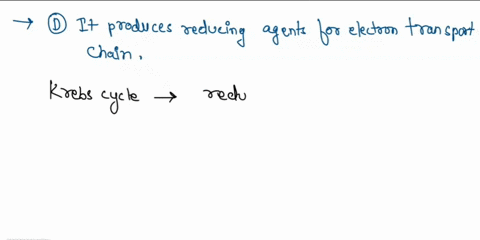 → Ⓓ It produces reducing agents for electron transport
chain.
Krebs cycle → redu